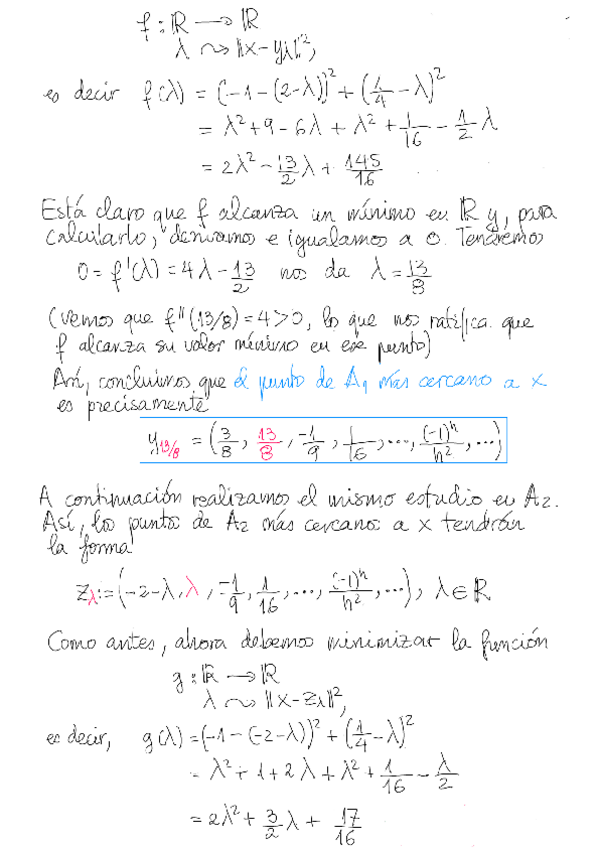 f : ℝ → ℝ
λ ⤳ ‖x - yλ‖²,
es decir f(λ) = (-1-(2-λ))² + (1/4 - λ)²
= λ² + 9 - 6λ + λ² + 1/16 - 1/2 λ
= 2λ² - 13/2 λ + 145/16
Está claro que f alcanza un mínimo en ℝ y, para
calcularlo, derivamos e igualamos a 0. Tendremos
0 = f'(λ) = 4λ - 13/2 nos da λ = 13/8
(vemos que f''(13/8) = 4 > 0, lo que nos ratifica que
f alcanza su valor mínimo en ese punto)
Así, concluimos que el punto de A₁ más cercano a x
es precisamente
y13/8 = (3/8, 13/8, -1/9, 1/16, ..., (-1)ⁿ/n², ...)
A continuación realizamos el mismo estudio en A₂.
Así, los puntos de A₂ más cercanos a x tendrán
la forma
zλ := (-2-λ, λ, -1/9, 1/16, ..., (-1)ⁿ/n², ...), λ ∈ ℝ
Como antes, ahora debemos minimizar la función
g : ℝ → ℝ
λ ⤳ ‖x - zλ‖²,
es decir, g(λ) = (-1-(-2-λ))² + (1/4 - λ)²
= λ² + 1 + 2λ + λ² + 1/16 - λ/2
= 2λ² + 3/2 λ + 17/16